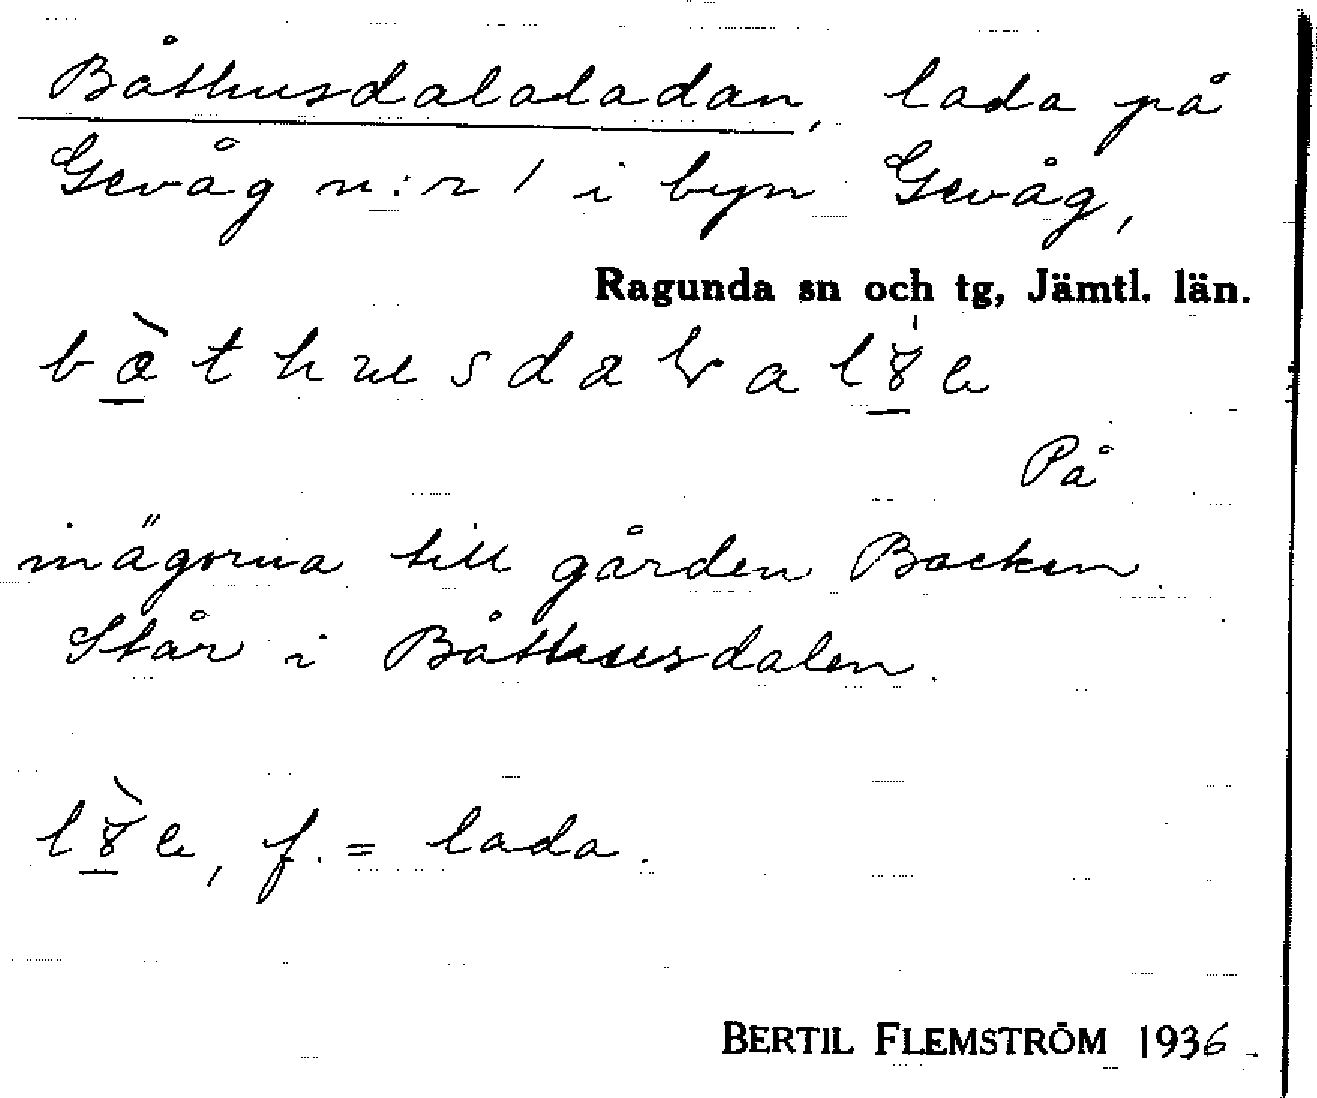 Båthusdalaladan, lada på
Gevåg n:r 1 i byn Gevåg,
Ragunda sn och tg, Jämtl. län.
På
inägorna till gården Backen.
Står i Båthusdalen.
f. = lada.
BERTIL FLEMSTRÖM 1936.